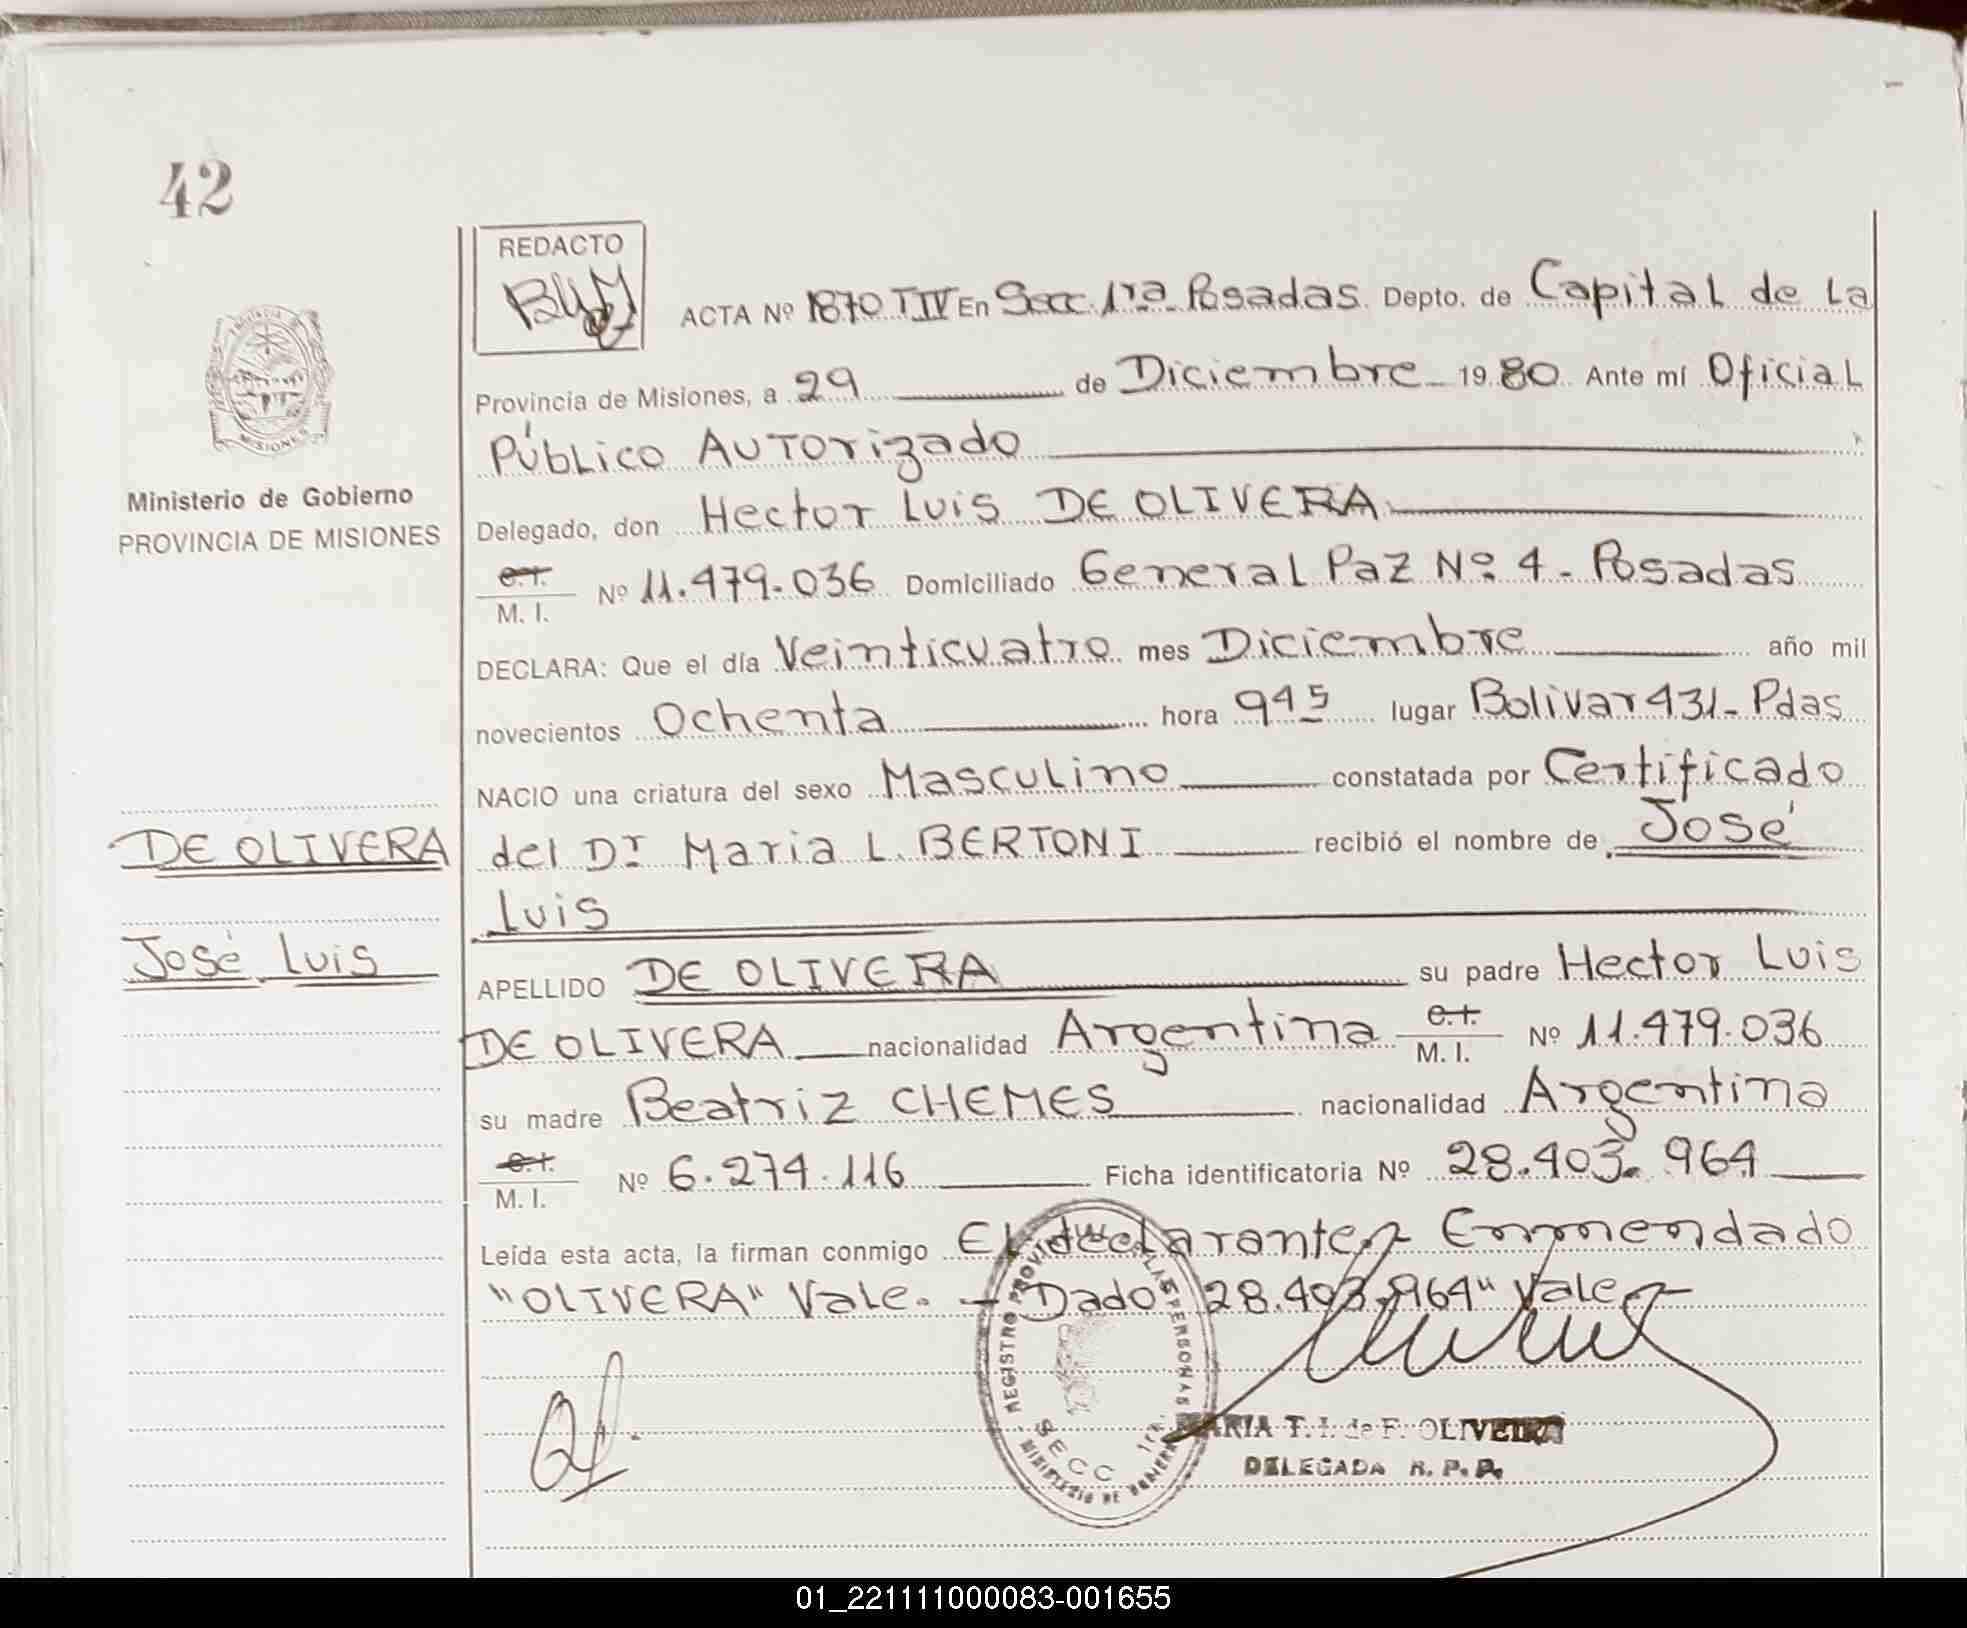 42
REDACTO
ACTA Nº 1870 TIV En Secc. 1ra Posadas. Depto. de Capital de La
Provincia de Misiones, a 29 de Diciembre 1980 Ante mí Oficial
Público Autorizado
Ministerio de Gobierno
PROVINCIA DE MISIONES
Delegado, don Hector Luis DE OLIVERA
C.I. M. I. Nº 11.479.036 Domiciliado General Paz Nº 4 - Posadas
DECLARA: Que el día Veinticuatro mes Diciembre año mil
novecientos Ochenta hora 9 45 lugar Bolivar 431 - Pdas
NACIO una criatura del sexo Masculino constatada por Certificado
DE OLIVERA
del Dr Maria L. BERTONI recibió el nombre de José
Luis
José Luis
APELLIDO DE OLIVERA su padre Hector Luis
DE OLIVERA nacionalidad Argentina C.I. M. I. Nº 11.479.036
su madre Beatriz CHEMES nacionalidad Argentina
C.I. M. I. Nº 6.274.116 Ficha identificatoria Nº 28.403.964
Leída esta acta, la firman conmigo El declarante Enmendado
"OLIVERA" Vale. - Dado "28.403.964" Vale
REGISTRO PROVINCIAL DE LAS PERSONAS
SECC 1ra.
MINISTERIO DE GOBIERNO
MARIA T. I. de F. OLIVEIRA
DELEGADA R. P. P.
01_221111000083-001655